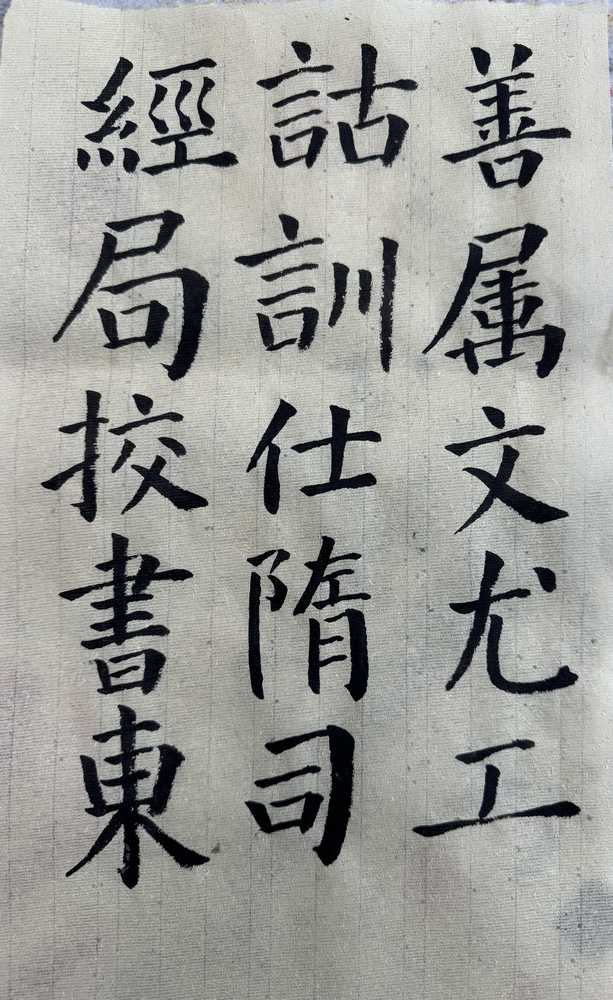 善属文尤工
詁訓仕隋司
經局挍書東